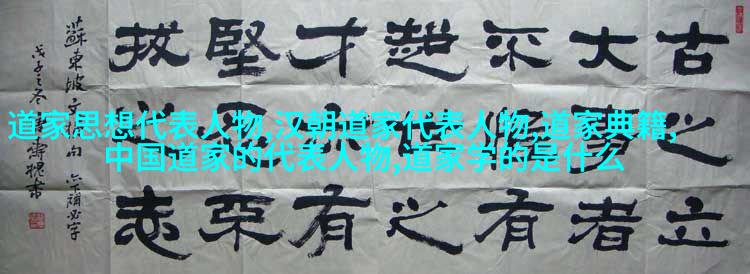 道家思想代表人物,汉朝道家代表人物,道家典籍,
中国道家的代表人物,道家学的是什么
古之立
大者
不惟有
超世之
才亦有
堅忍不
拔之志
蘇東坡文句 下補必字
戊子之冬 書